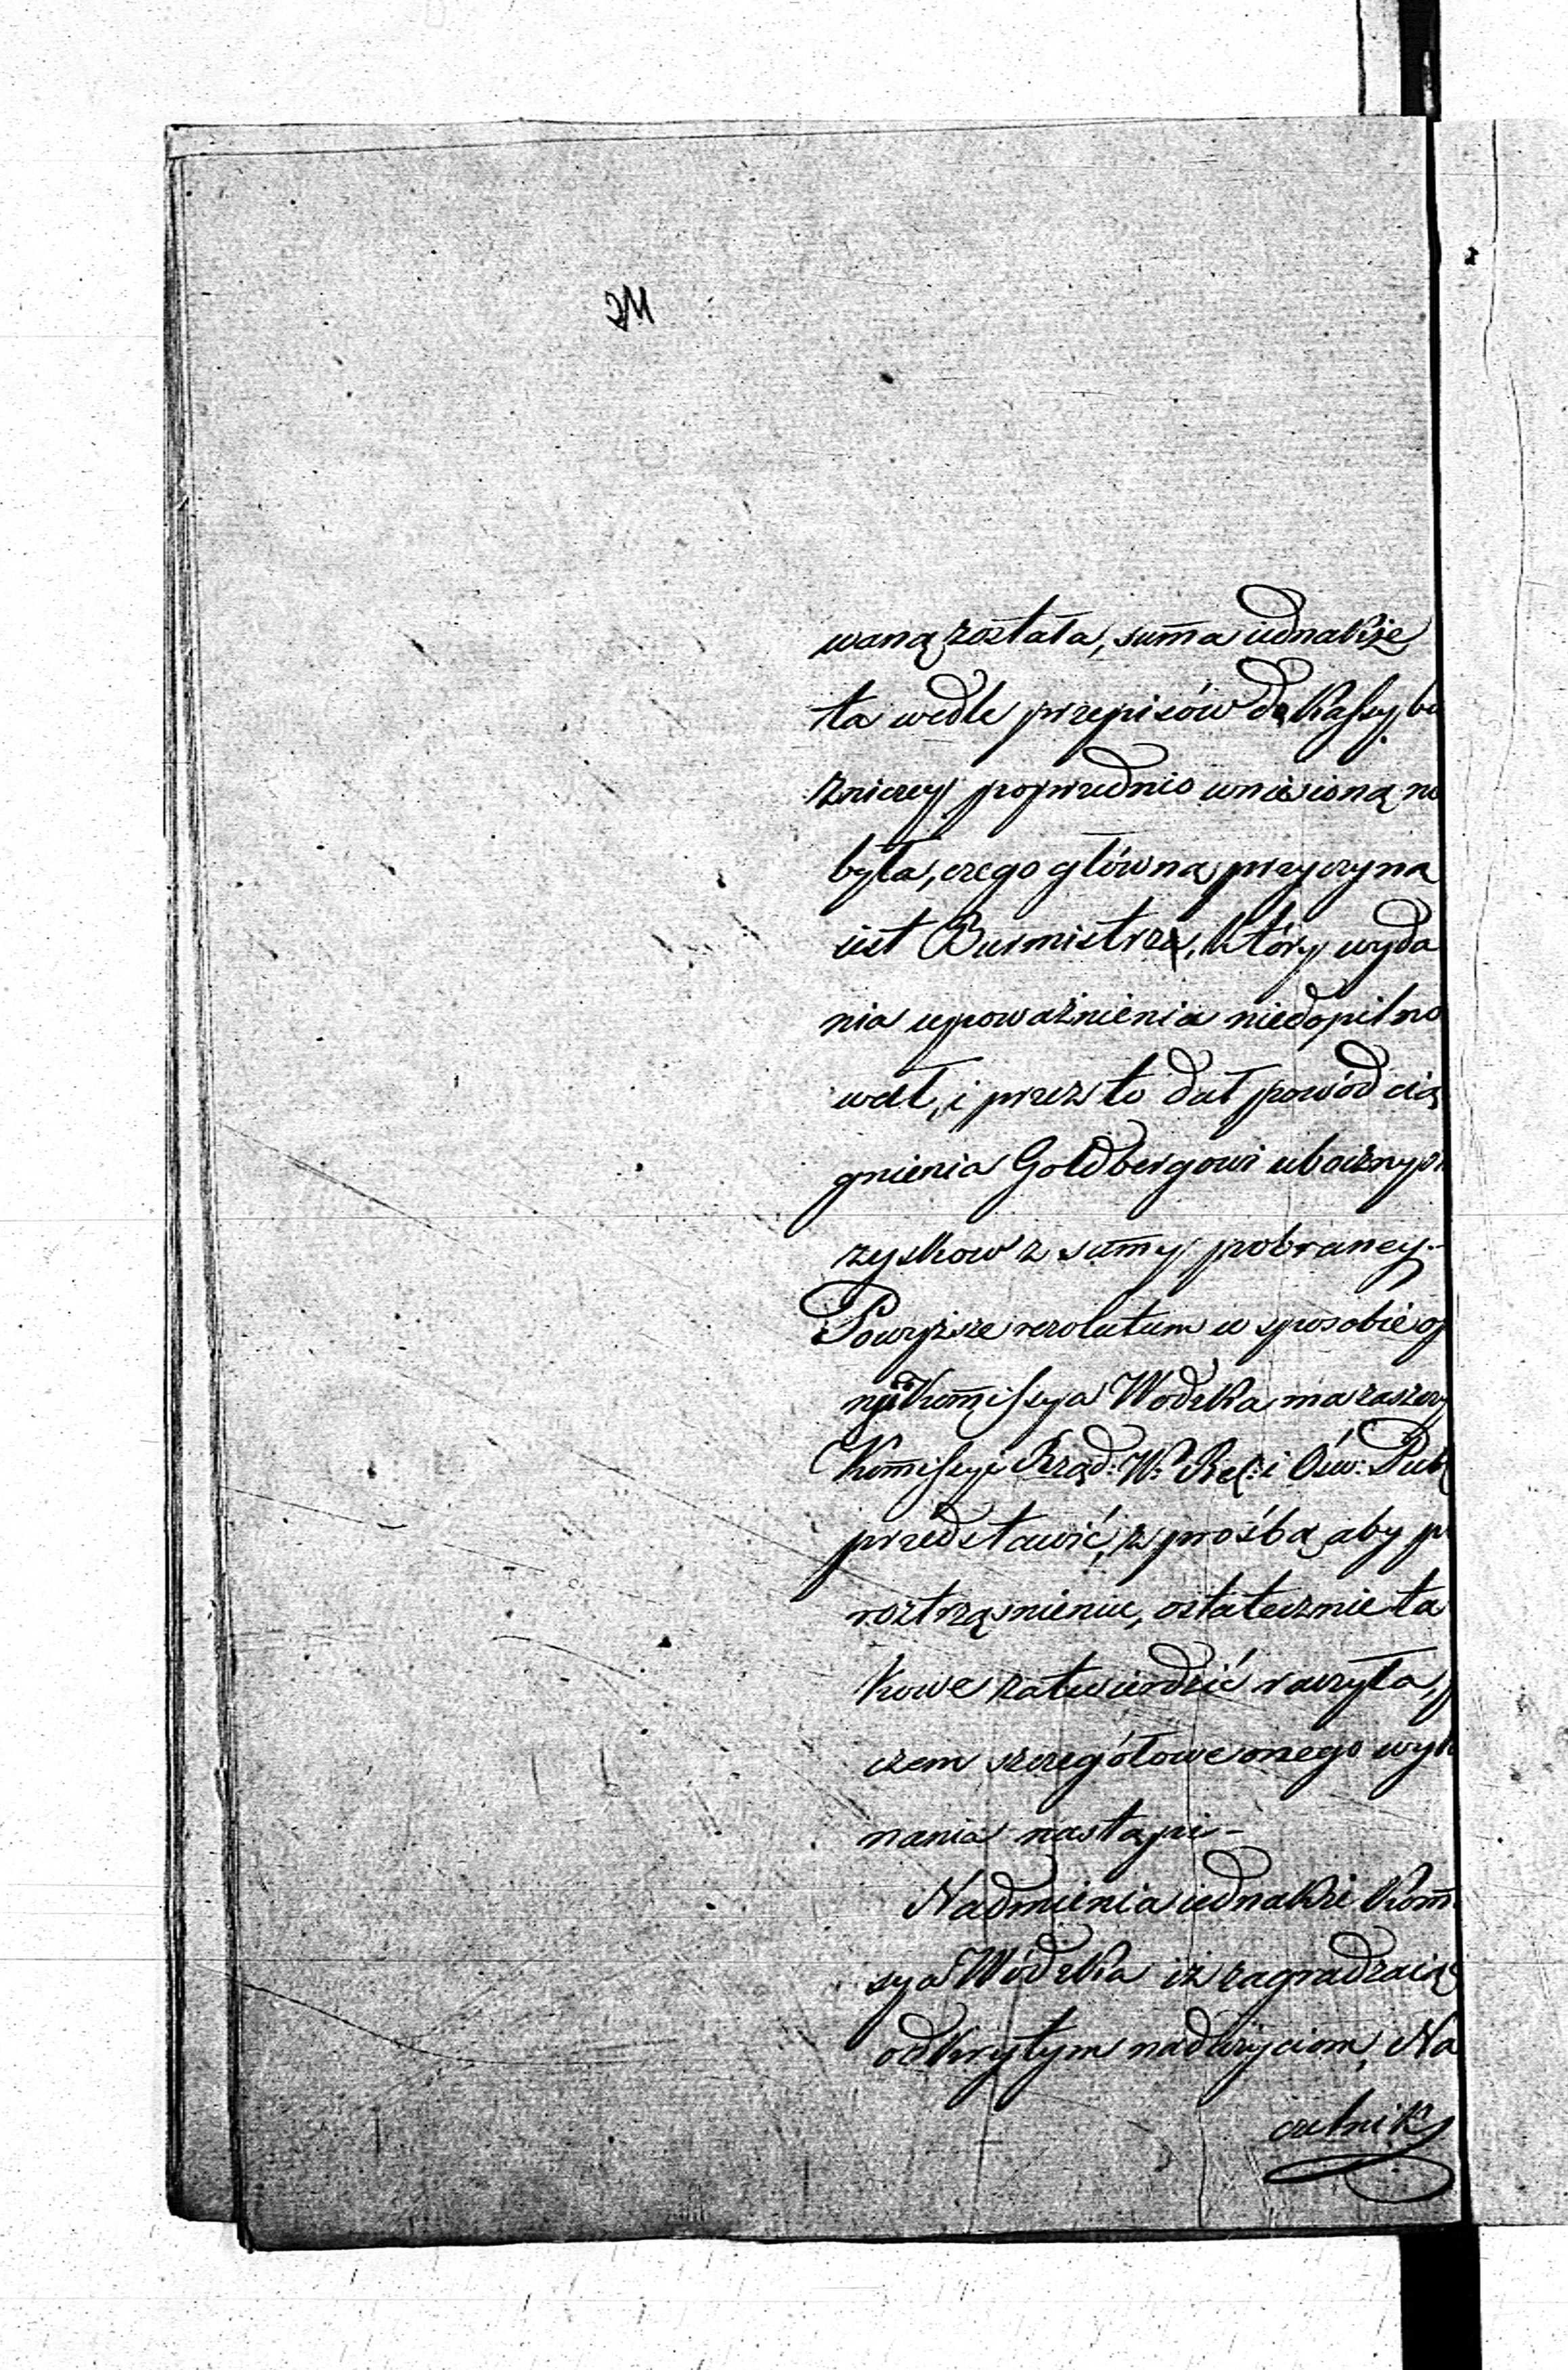 waną została, suma iednakże
ta wedle przepisów do Kassy bo
żniczey poprzednio wniesioną nie
była, czego główną przyczyną
iest Burmistrz, który wyda
nia upoważnienia niedopilno
wał, i przez to dał powód cią
gnienia Goldbergowi ubocznych
zysków z sumy pobraney.-
Powyższe rezolutum w sposobie op
nii Kommissya Wodzka ma zaszczy
Kommissyi Rząd: W. Rel: i Ośw: Publ
przedstawić, z prośbą aby p
roztrząśnieniu, ostatecznie ta
kowe zatwierdzić raczyła, p
czem szczegółowe onego wyko
nania nastąpi-
Nadmienia iednakże Kom
sya Wódzka iż zagradzaiąc
odkrytym nadużyciom, Na
czelnik